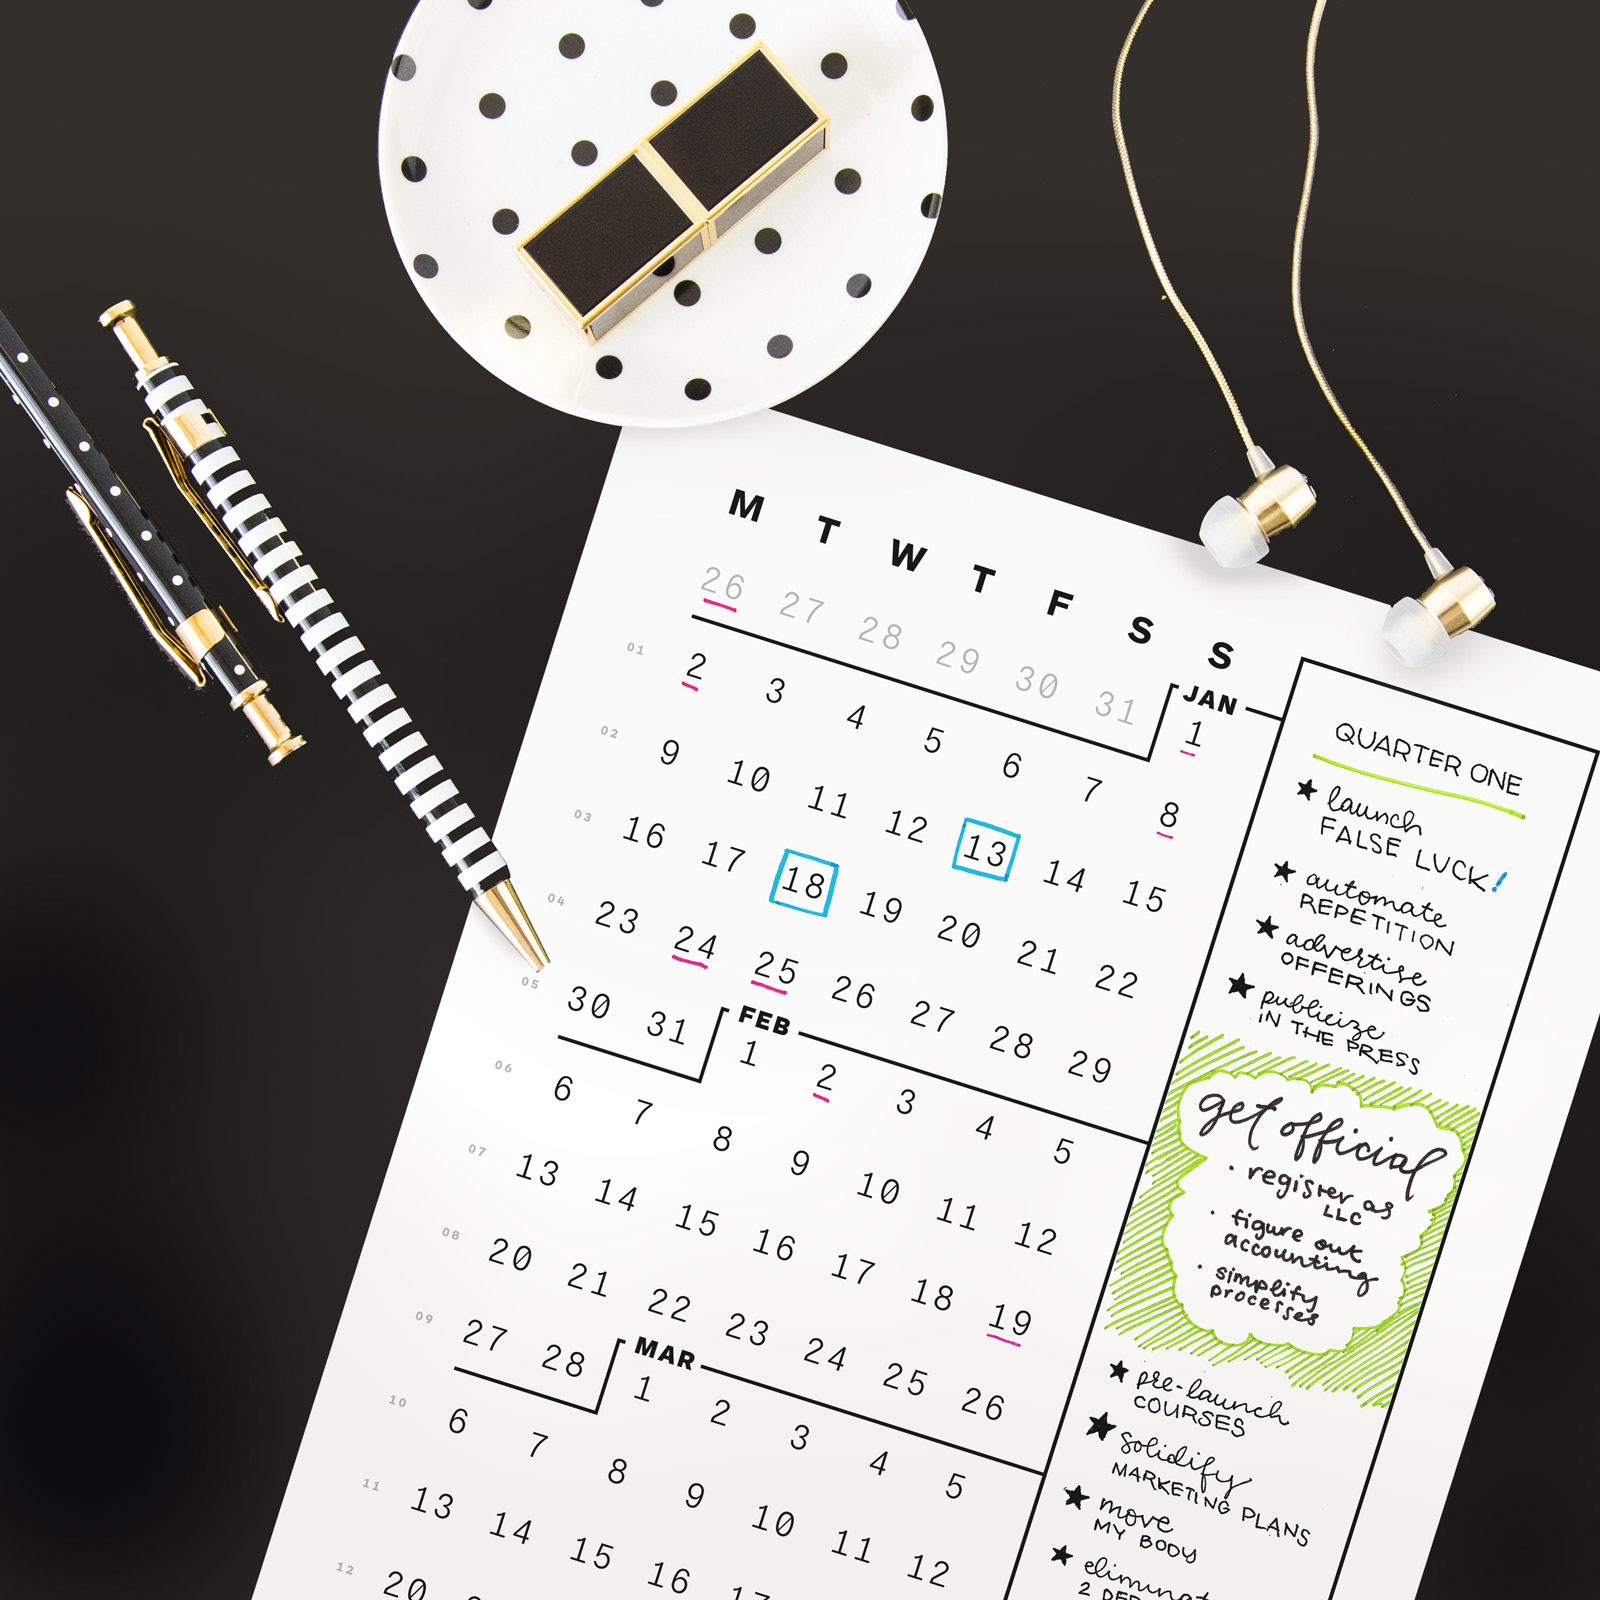 M T W T F S S
26 27 28 29 30 31
JAN
1
01 2 3 4 5 6 7 8
02 9 10 11 12 13 14 15
03 16 17 18 19 20 21 22
04 23 24 25 26 27 28 29
05 30 31
FEB
1 2 3 4 5
06 6 7 8 9 10 11 12
07 13 14 15 16 17 18 19
08 20 21 22 23 24 25 26
09 27 28
MAR
1 2 3 4 5
10 6 7 8 9 10 11 12
11 13 14 15 16
12 20
QUARTER ONE
★ launch
FALSE LUCK!
★ automate
REPETITION
★ advertise
OFFERINGS
★ publicize
IN THE PRESS
get official
· register as
LLC
· figure out
accounting
· simplify
processes
★ pre-launch
COURSES
★ solidify
MARKETING PLANS
★ move
MY BODY
★
2